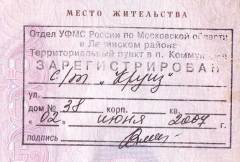 МЕСТО ЖИТЕЛЬСТВА
Отдел УФМС России по Московской области
в Ленинском районе
Территориальный пункт в п. Коммунарка
ЗАРЕГИСТРИРОВАН
с/т
ул.
дом № 38 корп. кв.
"02" июня 2007 г.
подпись